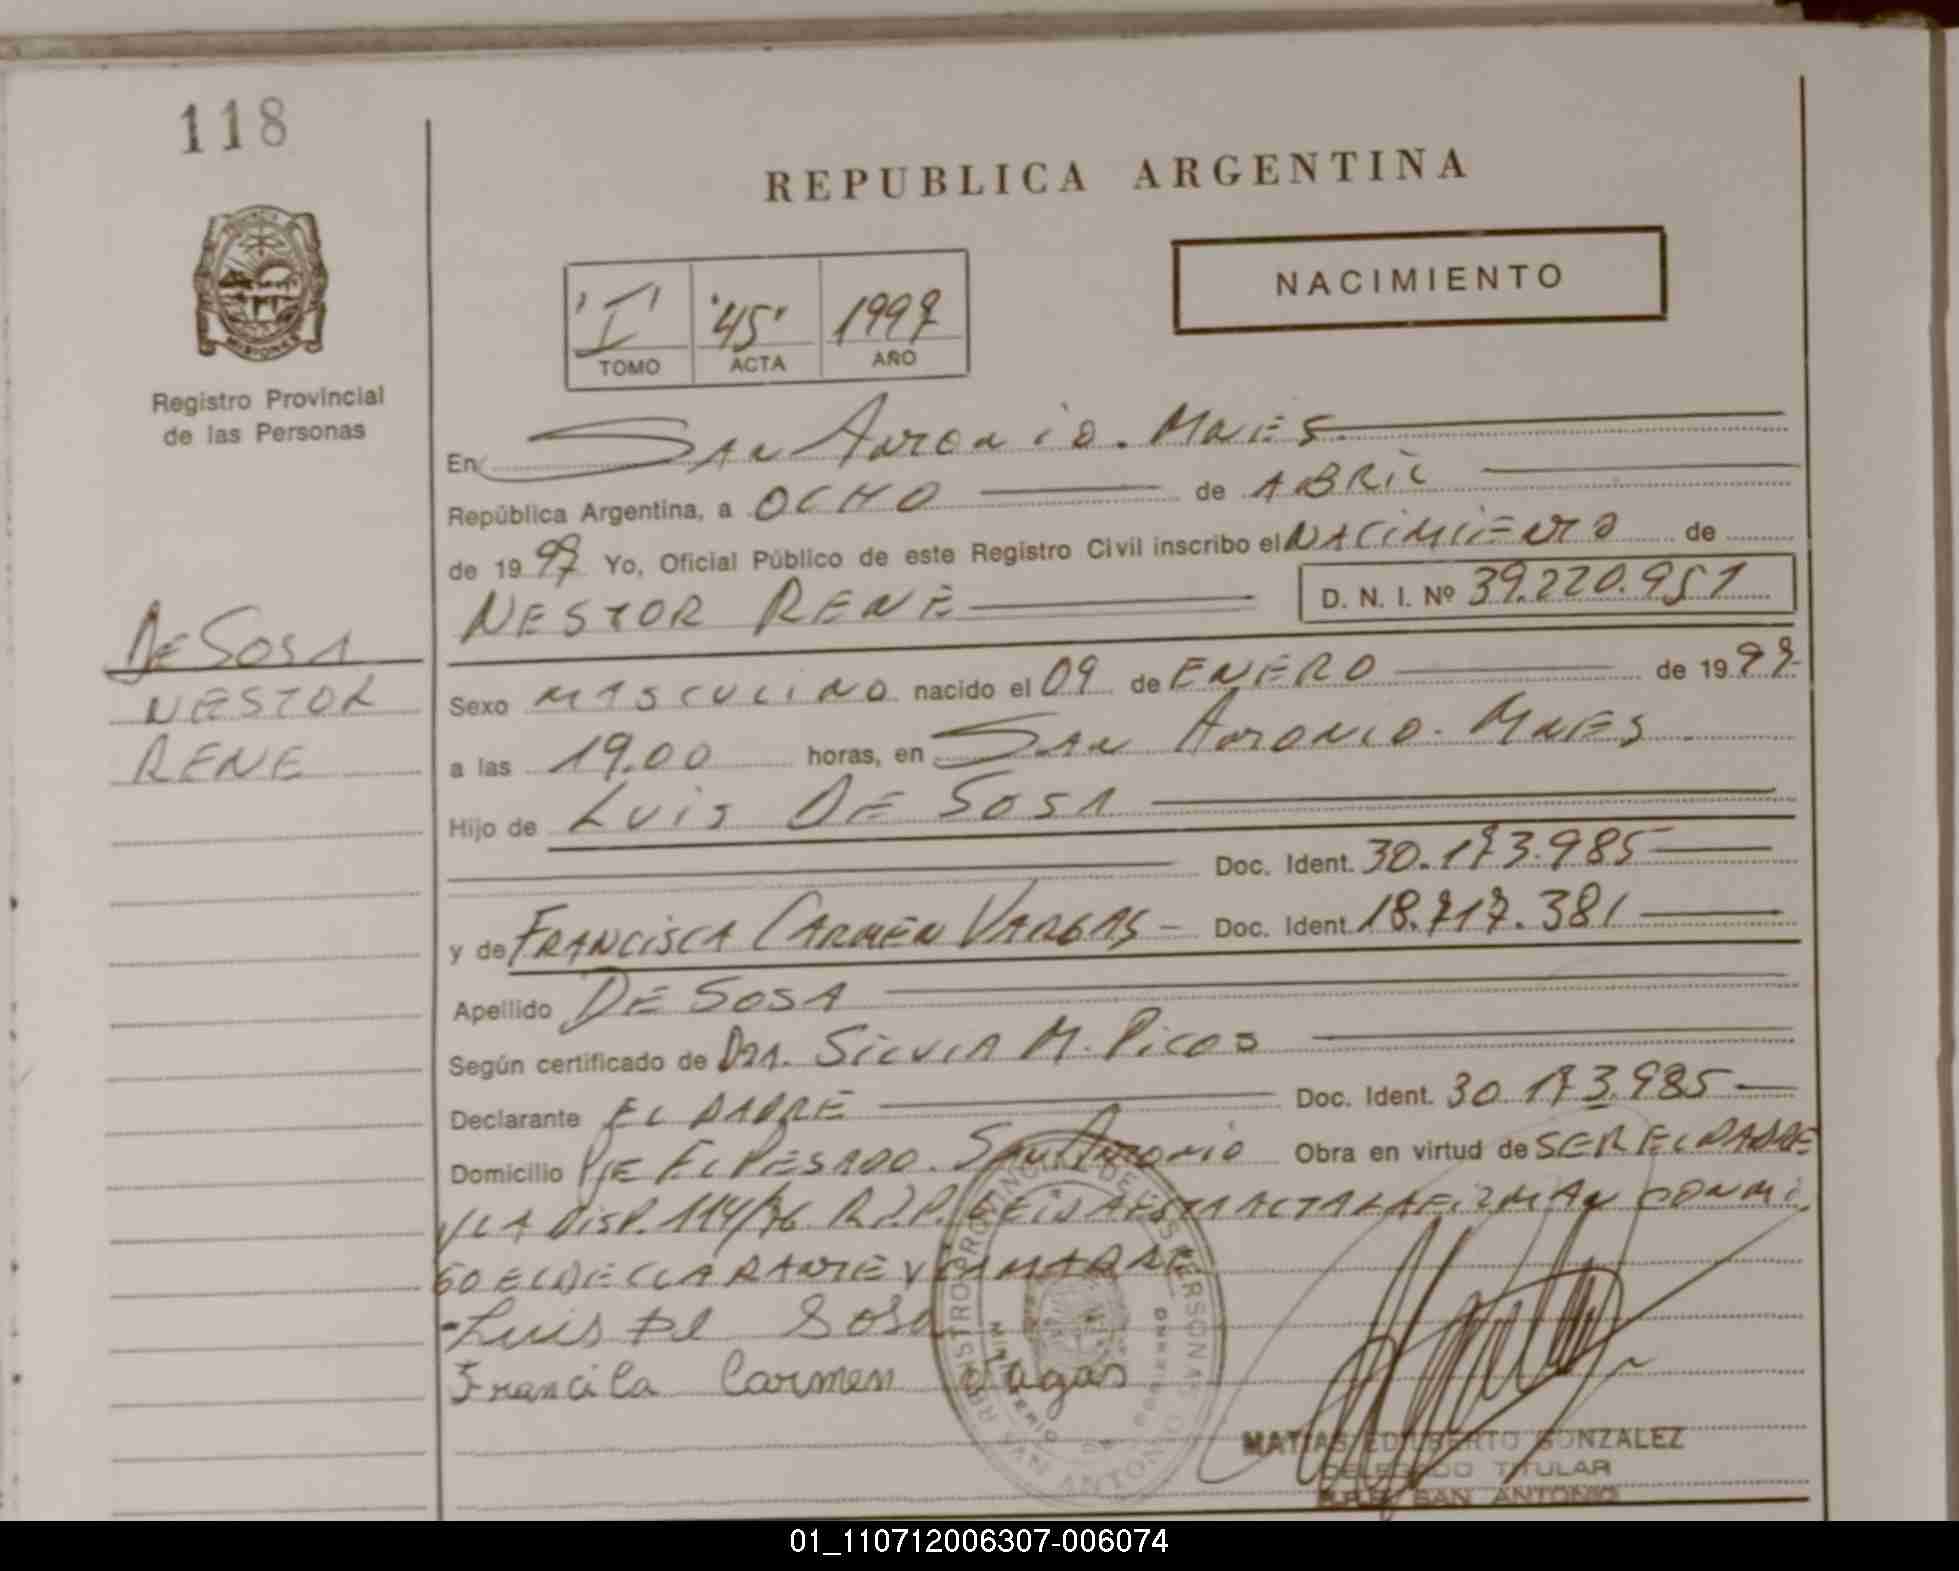 118
REPUBLICA ARGENTINA
NACIMIENTO
"I" "45" 1997
TOMO ACTA AÑO
MISIONES
Registro Provincial
de las Personas
En San Antonio. Mnes.
República Argentina, a OCHO de ABRIL
de 1997 Yo, Oficial Público de este Registro Civil inscribo el NACIMIENTO de
NESTOR RENE D. N. I. Nº 39.220.951
DE SOSA
NESTOR
RENE
Sexo MASCULINO nacido el 09 de ENERO de 1997
a las 19.00 horas, en San Antonio. Mnes
Hijo de LUIS DE SOSA
Doc. Ident. 30.173.985
y de FRANCISCA CARMEN VARGAS Doc. Ident. 18.717.381
Apellido DE SOSA
Según certificado de Dra. Silvia M. Picos
Declarante EL PADRE Doc. Ident. 30.173.985
Domicilio Pje El Pesado. San Antonio Obra en virtud de SER EL PADRE
y LA DISP. 114/76 R.P.P. LEIDA ESTA ACTA LA FIRMAN CONMI
GO EL DECLARANTE Y LA MADRE
-Luis De Sosa
Carmen
REGISTRO PROVINCIAL DE LAS PERSONAS
SAN ANTONIO
MATIAS EDILBERTO GONZALEZ
DELEGADO TITULAR
R.P.P. SAN ANTONIO
01_110712006307-006074